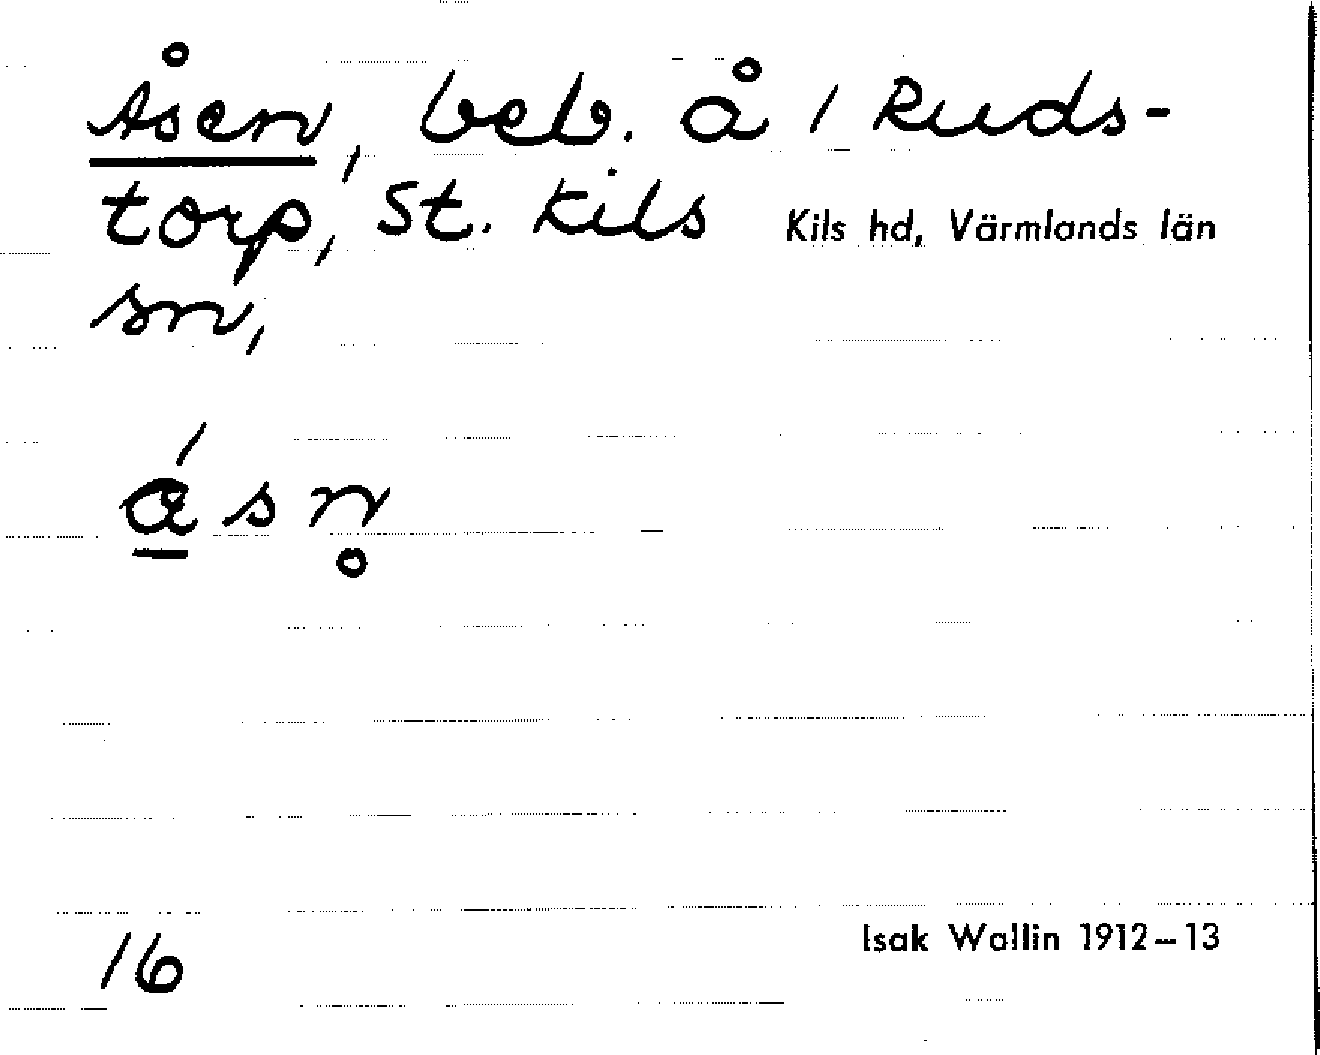 Åsen, beb. å 1 Ruds-
torp, St. Kils Kils hd, Värmlands län
sn,
ásn̥
16
Isak Wallin 1912–13